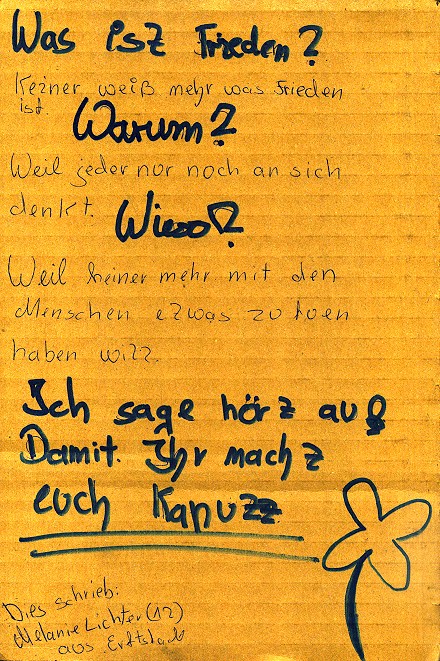 Was ist Frieden?
Keiner weiß mehr was Frieden
ist.
Warum?
Weil jeder nur noch an sich
denkt.
Wieso?
Weil keiner mehr mit den
Menschen etwas zu tuen
haben will.
Ich sage hört auf
Damit. Ihr macht
euch Kaputt
Dies schrieb:
Melanie Lichter (12)
aus Erftstadt